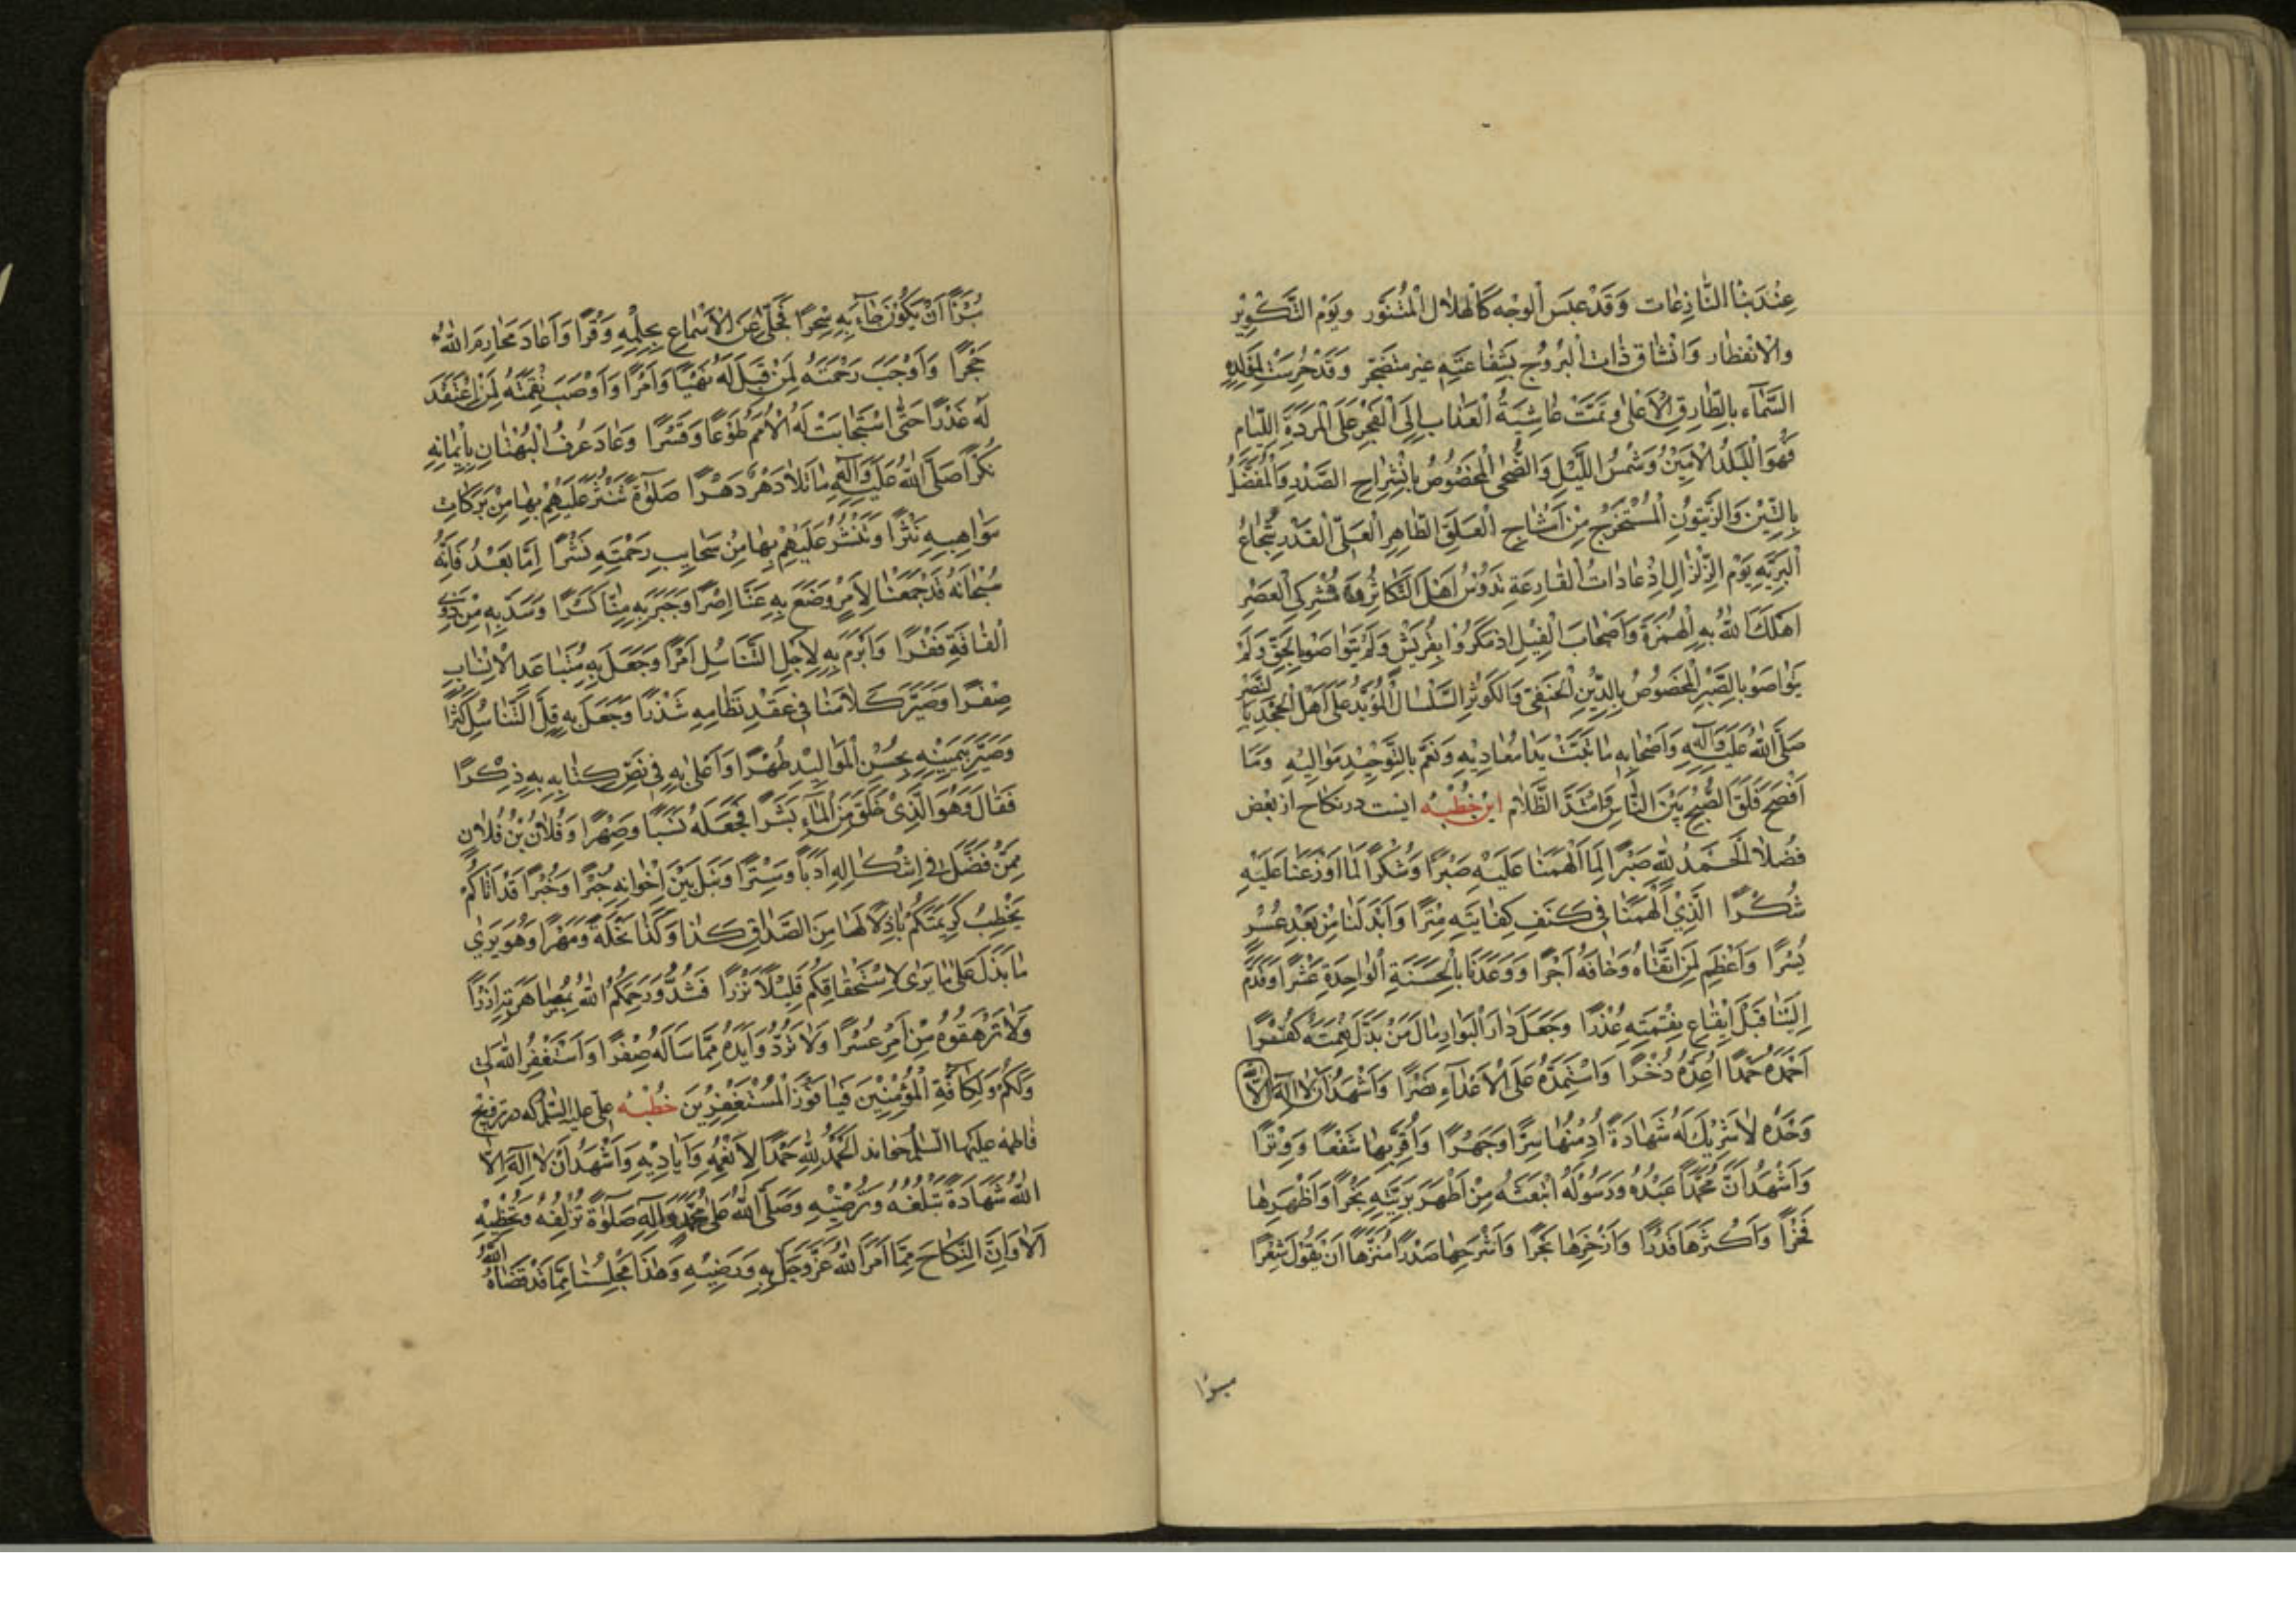 عِنْدَ بِنَا النَّازِعَات وَقَدْ عَبَسَ الْوَجْه كَالْهِلَال الْمُتَنَوَّر وَيَوْم التَّكْوِيْرِ
وَالْاِنْفِطَار وَانْشَاق ذَات الْبُرُوْج بِشَفَاعَتِهِ غَيْر مُتَضَجِّر وَقَدْ حُرِسَتْ
السَّمَاء بِالطَّارِقِ الْاَعْلٰى وَتَمَّتْ غَاشِيَةُ الْعَذَاب اِلَى الْفَجْرِ عَلَى الْمَرَدَةِ اللِّئَام
فَهُوَ الْبَلَدُ الْاَمِيْنُ وَشَمْسُ اللَّيْلِ وَالضُّحٰى الْمَخْصُوْصُ بِانْشِرَاحِ الصَّدْرِ وَالْمُفَضَّلُ
بِالتِّيْنِ وَالزَّيْتُوْنِ الْمُسْتَخْرَجُ مِنْ اَمْشَاجِ الْعَلَقِ الطَّاهِرِ الْعَلِيّ الْقَدْرِ شُجَاعُ
الْبَرِيَّةِ يَوْم الزِّلْزَالِ اِذْ عَادَاتُ الْقَارِعَةِ تَدُوْسُ اَهْلَ التَّكَاثُرِ مُشْرِكِي الْعَصْرِ
اَهْلَكَ اللهُ بِهِ الْهُمَزَةَ وَاَصْحَابَ الْفِيْلِ اِذْ مَكَرُوْا بِقُرَيْش وَلَمْ يَتَوَاصَوْا بِالْحَقِّ وَلَمْ
يَتَوَاصَوْا بِالصَّبْرِ الْمَخْصُوْصُ بِالدِّيْنِ الْحَنِيْفِي وَالْكَوْثَرِ السَّلْسَال الْمُؤَيَّدُ عَلٰى اَهْلِ الْجَحْدِ بِالنَّصْرِ
صَلَّى اللهُ عَلَيْهِ وَاٰلِهِ وَاَصْحَابِهِ مَا تَبَّتْ يَدَا مُعَادِيْهِ وَنَعَّمَ بِالتَّوْحِيْدِ مَوَالِيْهِ وَمَا
اَفْصَحَ فَلَقَ الصُّبْحِ بَيْنَ النَّاسِ وَامْتَدَّ الظَّلَام اين خُطْبَه اينست در نكاح از بعض
فُضَلَا اَلْحَمْدُ لِلّٰهِ صَبْرًا لِمَا اَلْهَمَنَا عَلَيْهِ صَبْرًا وَشُكْرًا لِمَا اَوْزَعَنَا عَلَيْهِ
شُكْرًا الَّذِيْ اَلْهَمَنَا فِيْ كَنَفِ كِفَايَتِهِ سِتْرًا وَاَبْدَلَنَا مِنْ بَعْدِ عُسْرٍ
يُسْرًا وَاَعْظَمَ لِمَنِ اتَّقَاهُ وَخَافَهُ اَجْرًا وَوَعَدَنَا بِالْحَسَنَةِ الْوَاحِدَةِ عَشْرًا وَقَدَّمَ
اِلَيْنَا قَبْلَ اِيْقَاعِ نِقْمَتِهِ عُذْرًا وَجَعَلَ دَارَ الْبَوَارِ مَالَ مَنْ بَدَّلَ نِعْمَتَهُ كُفْرًا
اَحْمَدُهُ حَمْدًا اُعِدُّهُ ذُخْرًا وَاَسْتَمِدُّهُ عَلَى الْاَعْدَاءِ نَصْرًا وَاَشْهَدُ اَنْ لَا اِلٰهَ اِلَّا الله
وَحْدَهُ لَا شَرِيْكَ لَهُ شَهَادَةً اُدِمْنُهَا سِرًّا وَجَهْرًا وَاُقِرُّ بِهَا شَفْعًا وَوِتْرًا
وَاَشْهَدُ اَنَّ مُحَمَّدًا عَبْدُهُ وَرَسُوْلُهُ ابْتَعَثَهُ مِنْ اَطْهَرِ بَرِيَّتِهِ نَجْرًا وَاَظْهَرِهَا
فَخْرًا وَاَكْثَرِهَا قَدْرًا وَاَزْخَرِهَا بَحْرًا وَاَشْرَحِهَا صَدْرًا مُنَزَّهًا اَنْ يَقُوْلَ شِعْرًا
مبرّا
مُبَرَّأً اَنْ يَكُوْنَ جَاءَ بِهِ سِحْرًا فَجَلّٰى عَنِ الْاَسْمَاعِ بِحِلْمِهِ وَقْرًا وَاَعَادَ مَحَارِمَ اللهِ
حِجْرًا وَاَوْجَبَ رَحْمَتَهُ لِمَنْ قَبِلَ لَهُ نَهْيًا وَاَمْرًا وَاَوْصَبَ نِقْمَتَهُ لِمَنِ اعْتَقَدَ
لَهُ غَدْرًا حَتّٰى اسْتَجَابَتْ لَهُ الْاُمَمُ طَوْعًا وَقَسْرًا وَعَادَ عُرْفُ الْبُهْتَانِ بِاِيْمَانِهِ
نُكْرًا صَلَّى اللهُ عَلَيْهِ وَاٰلِهِ مَا تَلَا دَهْرٌ دَهْرًا صَلٰوةً تَنْثُرُ عَلَيْهِمْ بِهَا مِنْ بَرَكَاتِ
مَوَاهِبِهِ نَثْرًا وَتَنْشُرُ عَلَيْهِمْ بِهَا مِنْ سَحَايِبِ رَحْمَتِهِ نَشْرًا اَمَّا بَعْدُ فَاِنَّهُ
سُبْحَانَهُ قَدْ جَمَعَنَا لِاَمْرٍ وَضَعَ بِهِ عَنَّا اِصْرًا وَجَبَرَ بِهِ مِنَّا كَسْرًا وَسَدَّ بِهِ مِنْ ذَوِي
الْفَاقَةِ فَقْرًا وَاَبْرَمَ بِهِ لِاَجْلِ التَّنَاسُلِ اَمْرًا وَجَعَلَ بِهِ مُتَبَاعَدَ الْاَنْسَابِ
صِهْرًا وَصَيَّرَ كَلَامَنَا فِيْ عَقْدِ نِظَامِهِ شَذْرًا وَجَعَلَ بِهِ قِلَّ التَّنَاسُلِ كُثْرًا
وَصَيَّرَ بِيَمِيْنِهِ بِحُسْنِ الْمَوَالِيْدِ طُهْرًا وَاَعْلٰى بِهِ فِيْ نَصِّ كِتَابِهِ بِهِ ذِكْرًا
فَقَالَ وَهُوَ الَّذِيْ خَلَقَ مِنَ الْمَاءِ بَشَرًا فَجَعَلَهُ نَسَبًا وَصِهْرًا وَفُلَانُ بْنُ فُلَانٍ
مِمَّنْ فَضَلَ فِيْ اَشْكَالِهِ اَدَبًا وَسِتْرًا وَنَبُلَ بَيْنَ اِخْوَانِهِ خَبَرًا وَخُبْرًا قَدْ اَتَاكُمْ
يَخْطُبُ كَرِيْمَتَكُمْ بَاذِلًا لَهَا مِنَ الصَّدَاقِ كَذَا وَكَذَا نِحْلَةً وَمَهْرًا وَهُوَ يَرٰى
مَا بَذَلَ عَلٰى مَا يَرٰى لِاسْتِحْقَاقِكُمْ قَلِيْلًا نَزْرًا فَشُدُّوْا رَحِمَكُمُ اللهُ بِمُصَاهَرَتِهِ اَزْرًا
وَلَا تُرْهِقُوْهُ مِنْ اَمْرِهِ عُسْرًا وَلَا تَرُدُّوْا يَدَهُ مِمَّا سَاَلَهُ صِفْرًا وَاَسْتَغْفِرُ اللهَ لِيْ
وَلَكُمْ وَلِكَافَّةِ الْمُؤْمِنِيْنَ فَيَا فَوْزَ الْمُسْتَغْفِرِيْنَ خُطْبَه علي عليه السلم كه در تزويج
فاطمه عليها السلم خواند اَلْحَمْدُ لِلّٰهِ حَمْدًا لِاَنْعُمِهِ وَاَيَادِيْهِ وَاَشْهَدُ اَنْ لَا اِلٰهَ اِلَّا
اللهُ شَهَادَةً تَبْلُغُهُ وَتُرْضِيْهِ وَصَلَّى اللهُ عَلٰى مُحَمَّدٍ وَاٰلِهِ صَلٰوةً تُزْلِفُهُ وَتُحْظِيْهِ
اَلَا وَاِنَّ النِّكَاحَ مِمَّا اَمَرَ اللهُ عَزَّ وَجَلَّ بِهِ وَرَضِيَهُ وَهٰذَا مَجْلِسُنَا مِمَّا قَدْ قَضَاهُ اللهُ